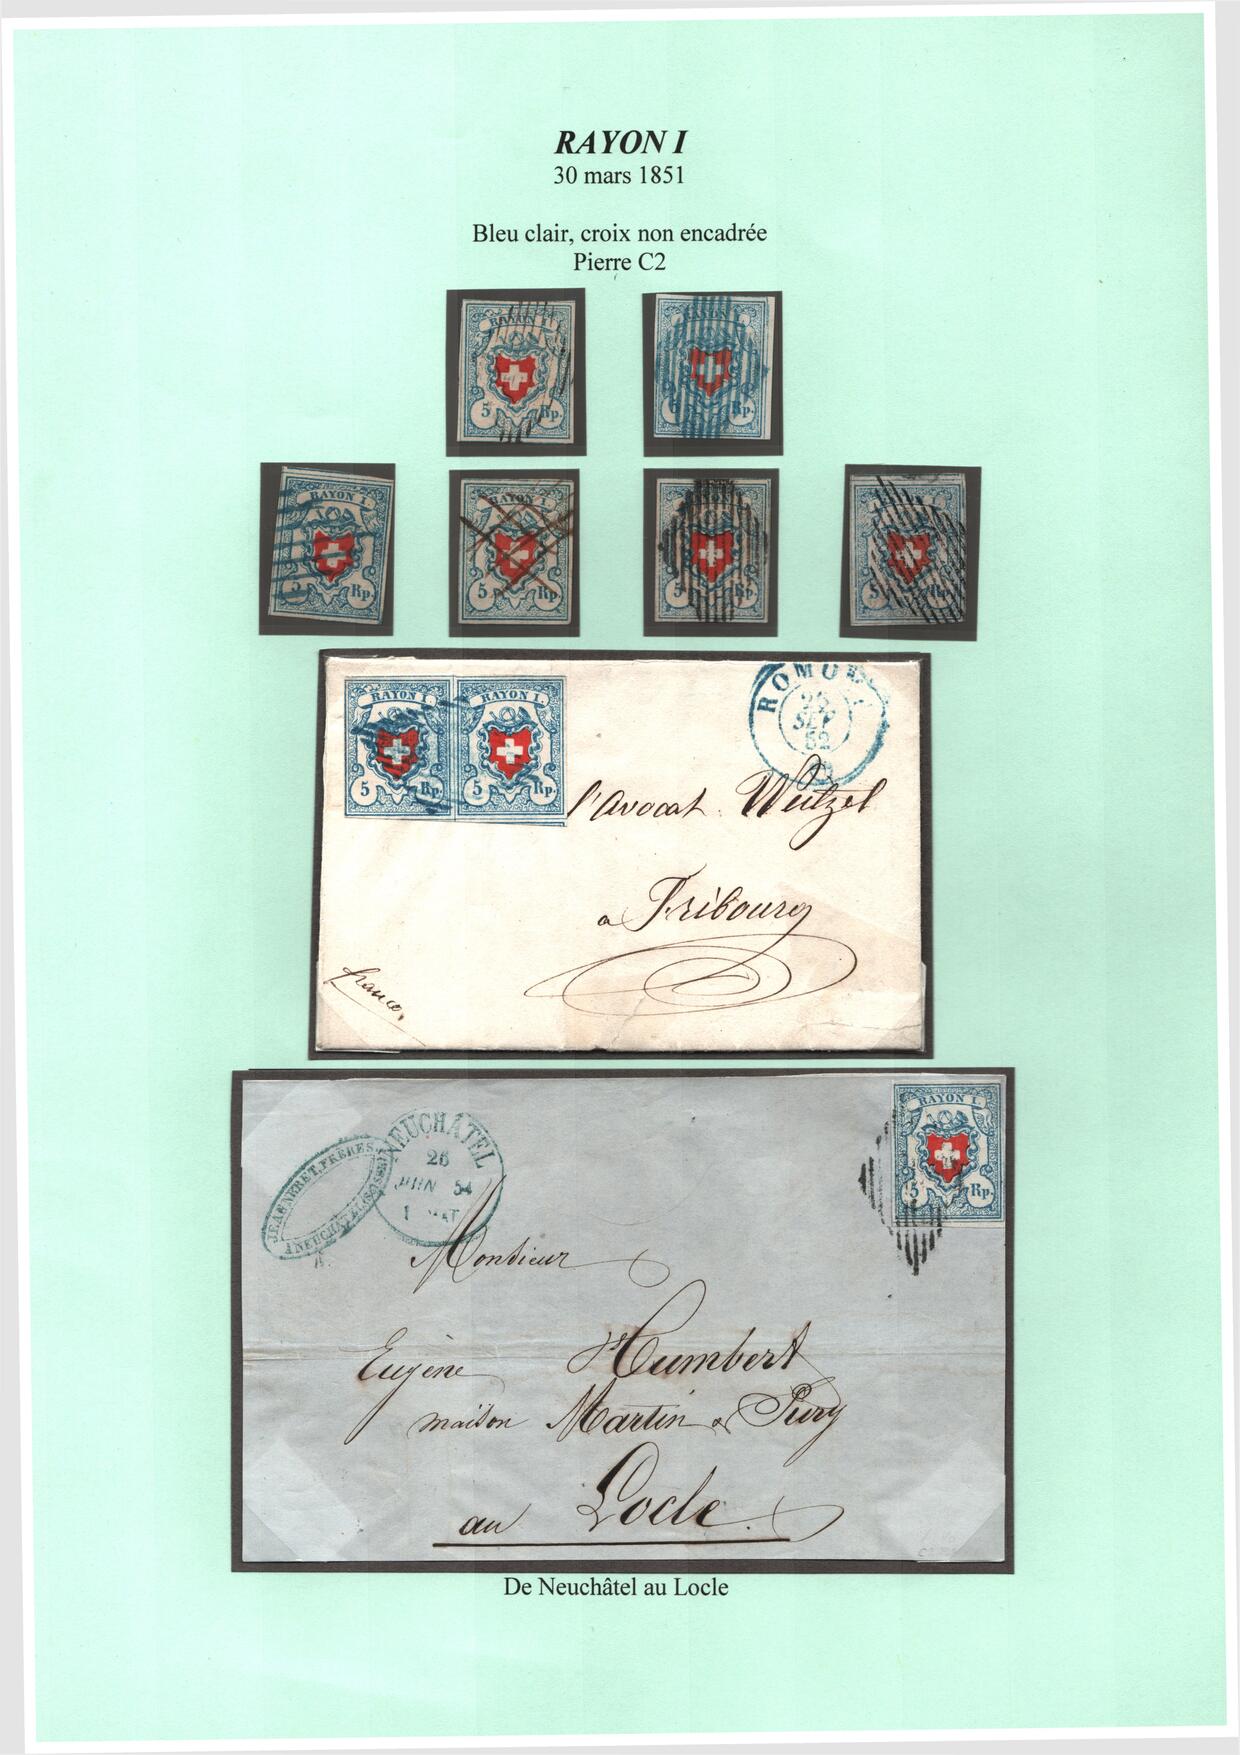 RAYON I
30 mars 1851
Bleu clair, croix non encadrée
Pierre C2
RAYON I.
5 Rp.
RAYON I.
5 Rp.
RAYON I.
5 Rp.
RAYON I.
5 Rp.
RAYON I.
5 Rp.
5 Rp.
RAYON I.
5 Rp.
RAYON I.
5 Rp.
ROMO
SEP
52
l'avocat Weitzel
a Fribourg
franco.
JEANNERET FRÈRES
A NEUCHATEL (SUISSE)
NEUCHÂTEL
26
JUIN 54
RAYON I.
5 Rp.
Monsieur
Eugène Humbert
maison Martin & Pury
au Locle.
De Neuchâtel au Locle